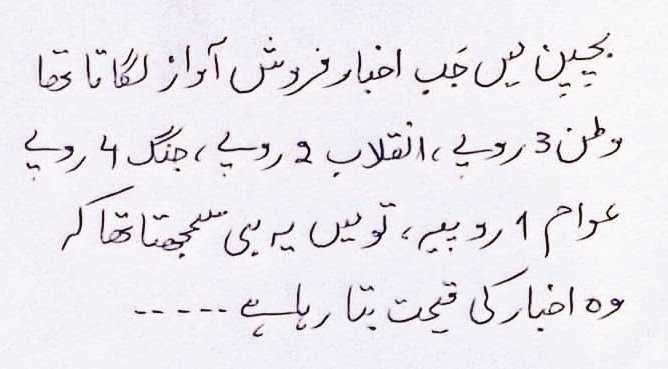 بچپن میں جب اخبار فروش آواز لگاتا تھا
وطن 3 روپے، انقلاب 2 روپے، جنگ 4 روپے
عوام 1 روپیہ، تو میں یہ ہی سمجھتا تھا کہ
وہ اخبار کی قیمت بتا رہا ہے -----